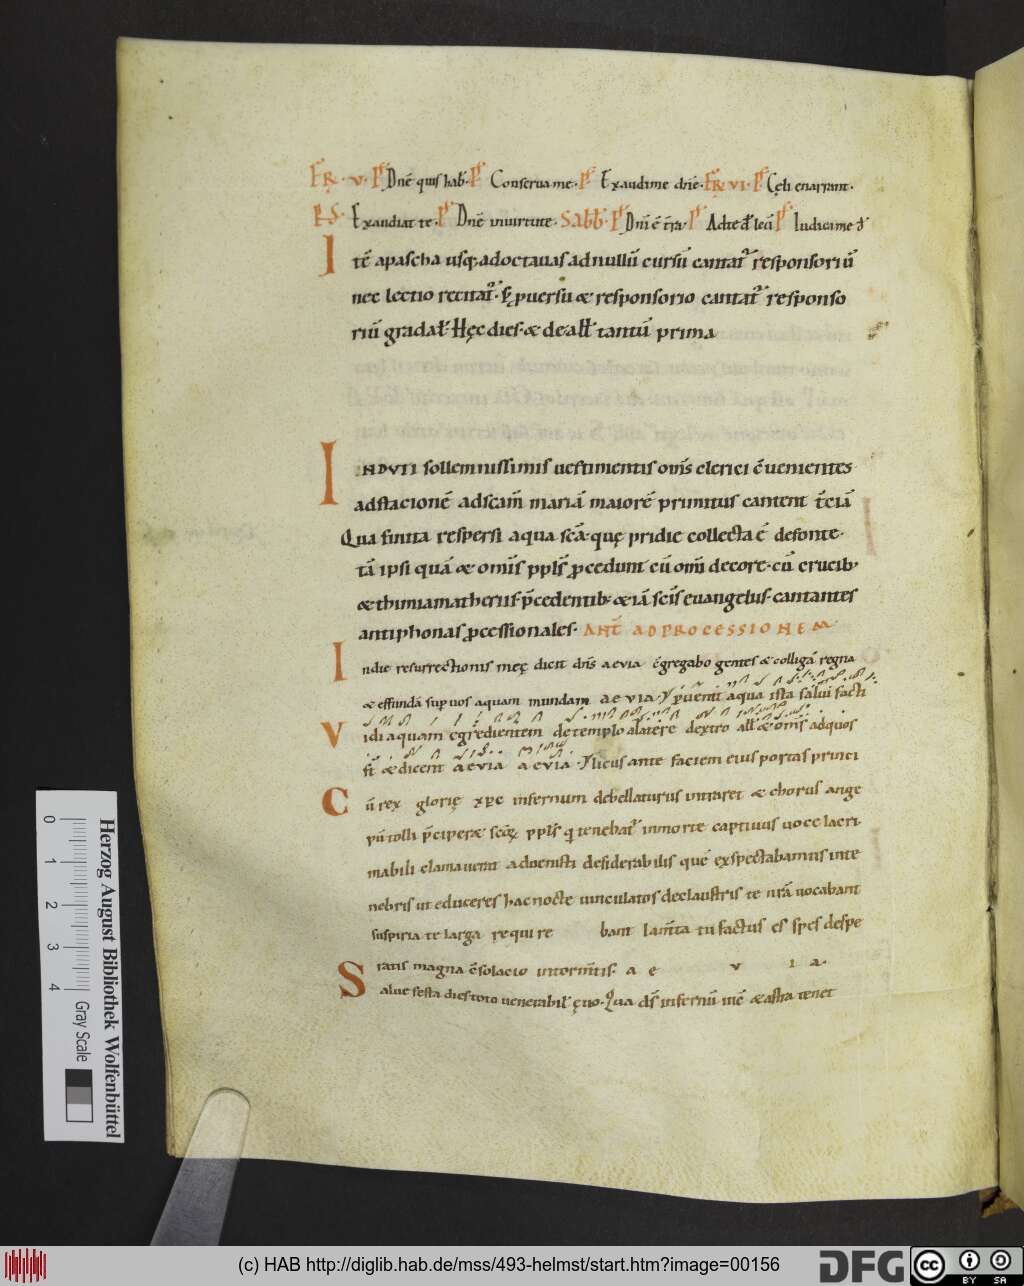 FR̄. V. Pſ Dnē quiſ hab̄. Pſ Conſerua me. Pſ Exaudi me dn̄e. FR̄. VI. Pſ Cęli enarrant.
Pſ. Exaudiat te. Pſ Dnē inuirtute. Sabb̄. Pſ Dn̄i ē t̄ra. Pſ Ad te dn̄e leuaui. Pſ Iudica me d̄ſ
Itē apaſcha uſq; ad octauaſ ad nullū curſū cantat᷑ reſponſoriū
nec lectio recitat᷑. Sȩ p uerſu & reſponſorio cantat᷑ reſponſo
riū gradal̄. Hęc dieſ. & de all̄ tantū prima
INDUTI ſollemniſſimiſ ueſtimentiſ om̄ſ clerici c̄uenienteſ
ad ſtacionē ad ſcam̄ mariā maiorē primituſ cantent t̄ciā
Qua finita reſperſi aqua ſcā. quę pridie collecta ē de fonte.
tā ipſi quā & om̄iſ pplſ̄ pcedunt cū om̄i decore. cū crucib;
& thimiamatheriiſ p̄cedentib; & iā ſciſ̄ euangeliiſ. cantanteſ
antiphonaſ pceſſionaleſ. ANT̄ AD PROCESSIONEM.
In die reſurrectioniſ meę dicit dn̄ſ aevia c̄gregabo genteſ & colligā regna
& effundā ſup uoſ aquam mundam aevia. V puenit aqua iſta ſalui facti
Vidi aquam egredientem de templo a latere dextro all̄ & om̄iſ ad quoſ
ſt̄ & dicent aevia aevia. V licuſ ante faciem eiuſ portaſ princi
Cū rex glorię xp̄c infernum debellaturuſ intraret & choruſ ange
licuſ
pū tolli p̄ciperet ſcōꝝ pplſ̄ q tenebat᷑ in morte captiuuſ uoce lacri
mabili clamauerat adueniſti deſiderabiliſ quē exſpectabamuſ in te
nebriſ ut educereſ hac nocte uinculatoſ de clauſtriſ te nr̄a uocabant
ſuſpiria te larga requirebant lam̄ta tu factuſ eſ ſpeſ deſpe
ratiſ magna c̄ſolacio in torm̄tiſ. a e v i a.
Salue feſta dieſ toto uenerabil̄ ęuo. Qua dſ̄ infernū uīc & aſtra tenet
0 1 2 3 4
Herzog August Bibliothek Wolfenbüttel
Gray Scale
(c) HAB http://diglib.hab.de/mss/493-helmst/start.htm?image=00156
DFG
cc BY SA